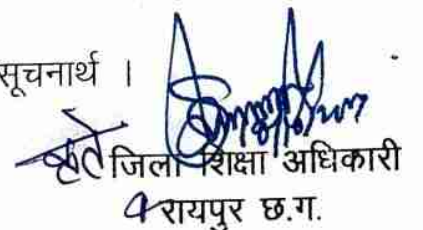 सूचनार्थ ।
कृते जिला शिक्षा अधिकारी
रायपुर छ.ग.